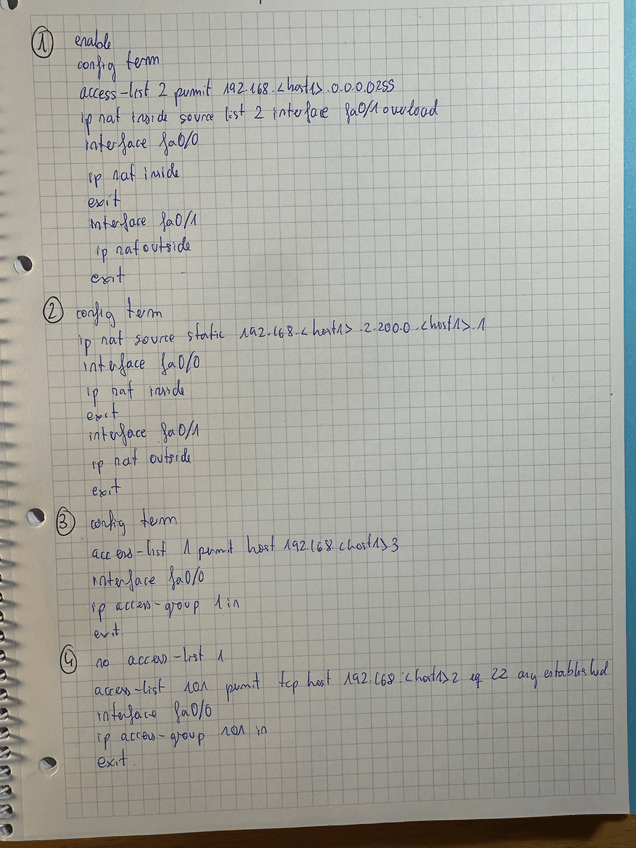 1 enable
config term
access-list 2 permit 192.168.<host1>.0 0.0.0.255
ip nat inside source list 2 interface fa0/1 overload
interface fa0/0
ip nat inside
exit
interface fa0/1
ip nat outside
exit
2 config term
ip nat source static 192.168.<host1>.2 200.0.<host1>.1
interface fa0/0
ip nat inside
exit
interface fa0/1
ip nat outside
exit
3 config term
access-list 1 permit host 192.168.<host1>3
interface fa0/0
ip access-group 1 in
exit
4 no access-list 1
access-list 101 permit tcp host 192.168.<host1>2 eq 22 any established
interface fa0/0
ip access-group 101 in
exit